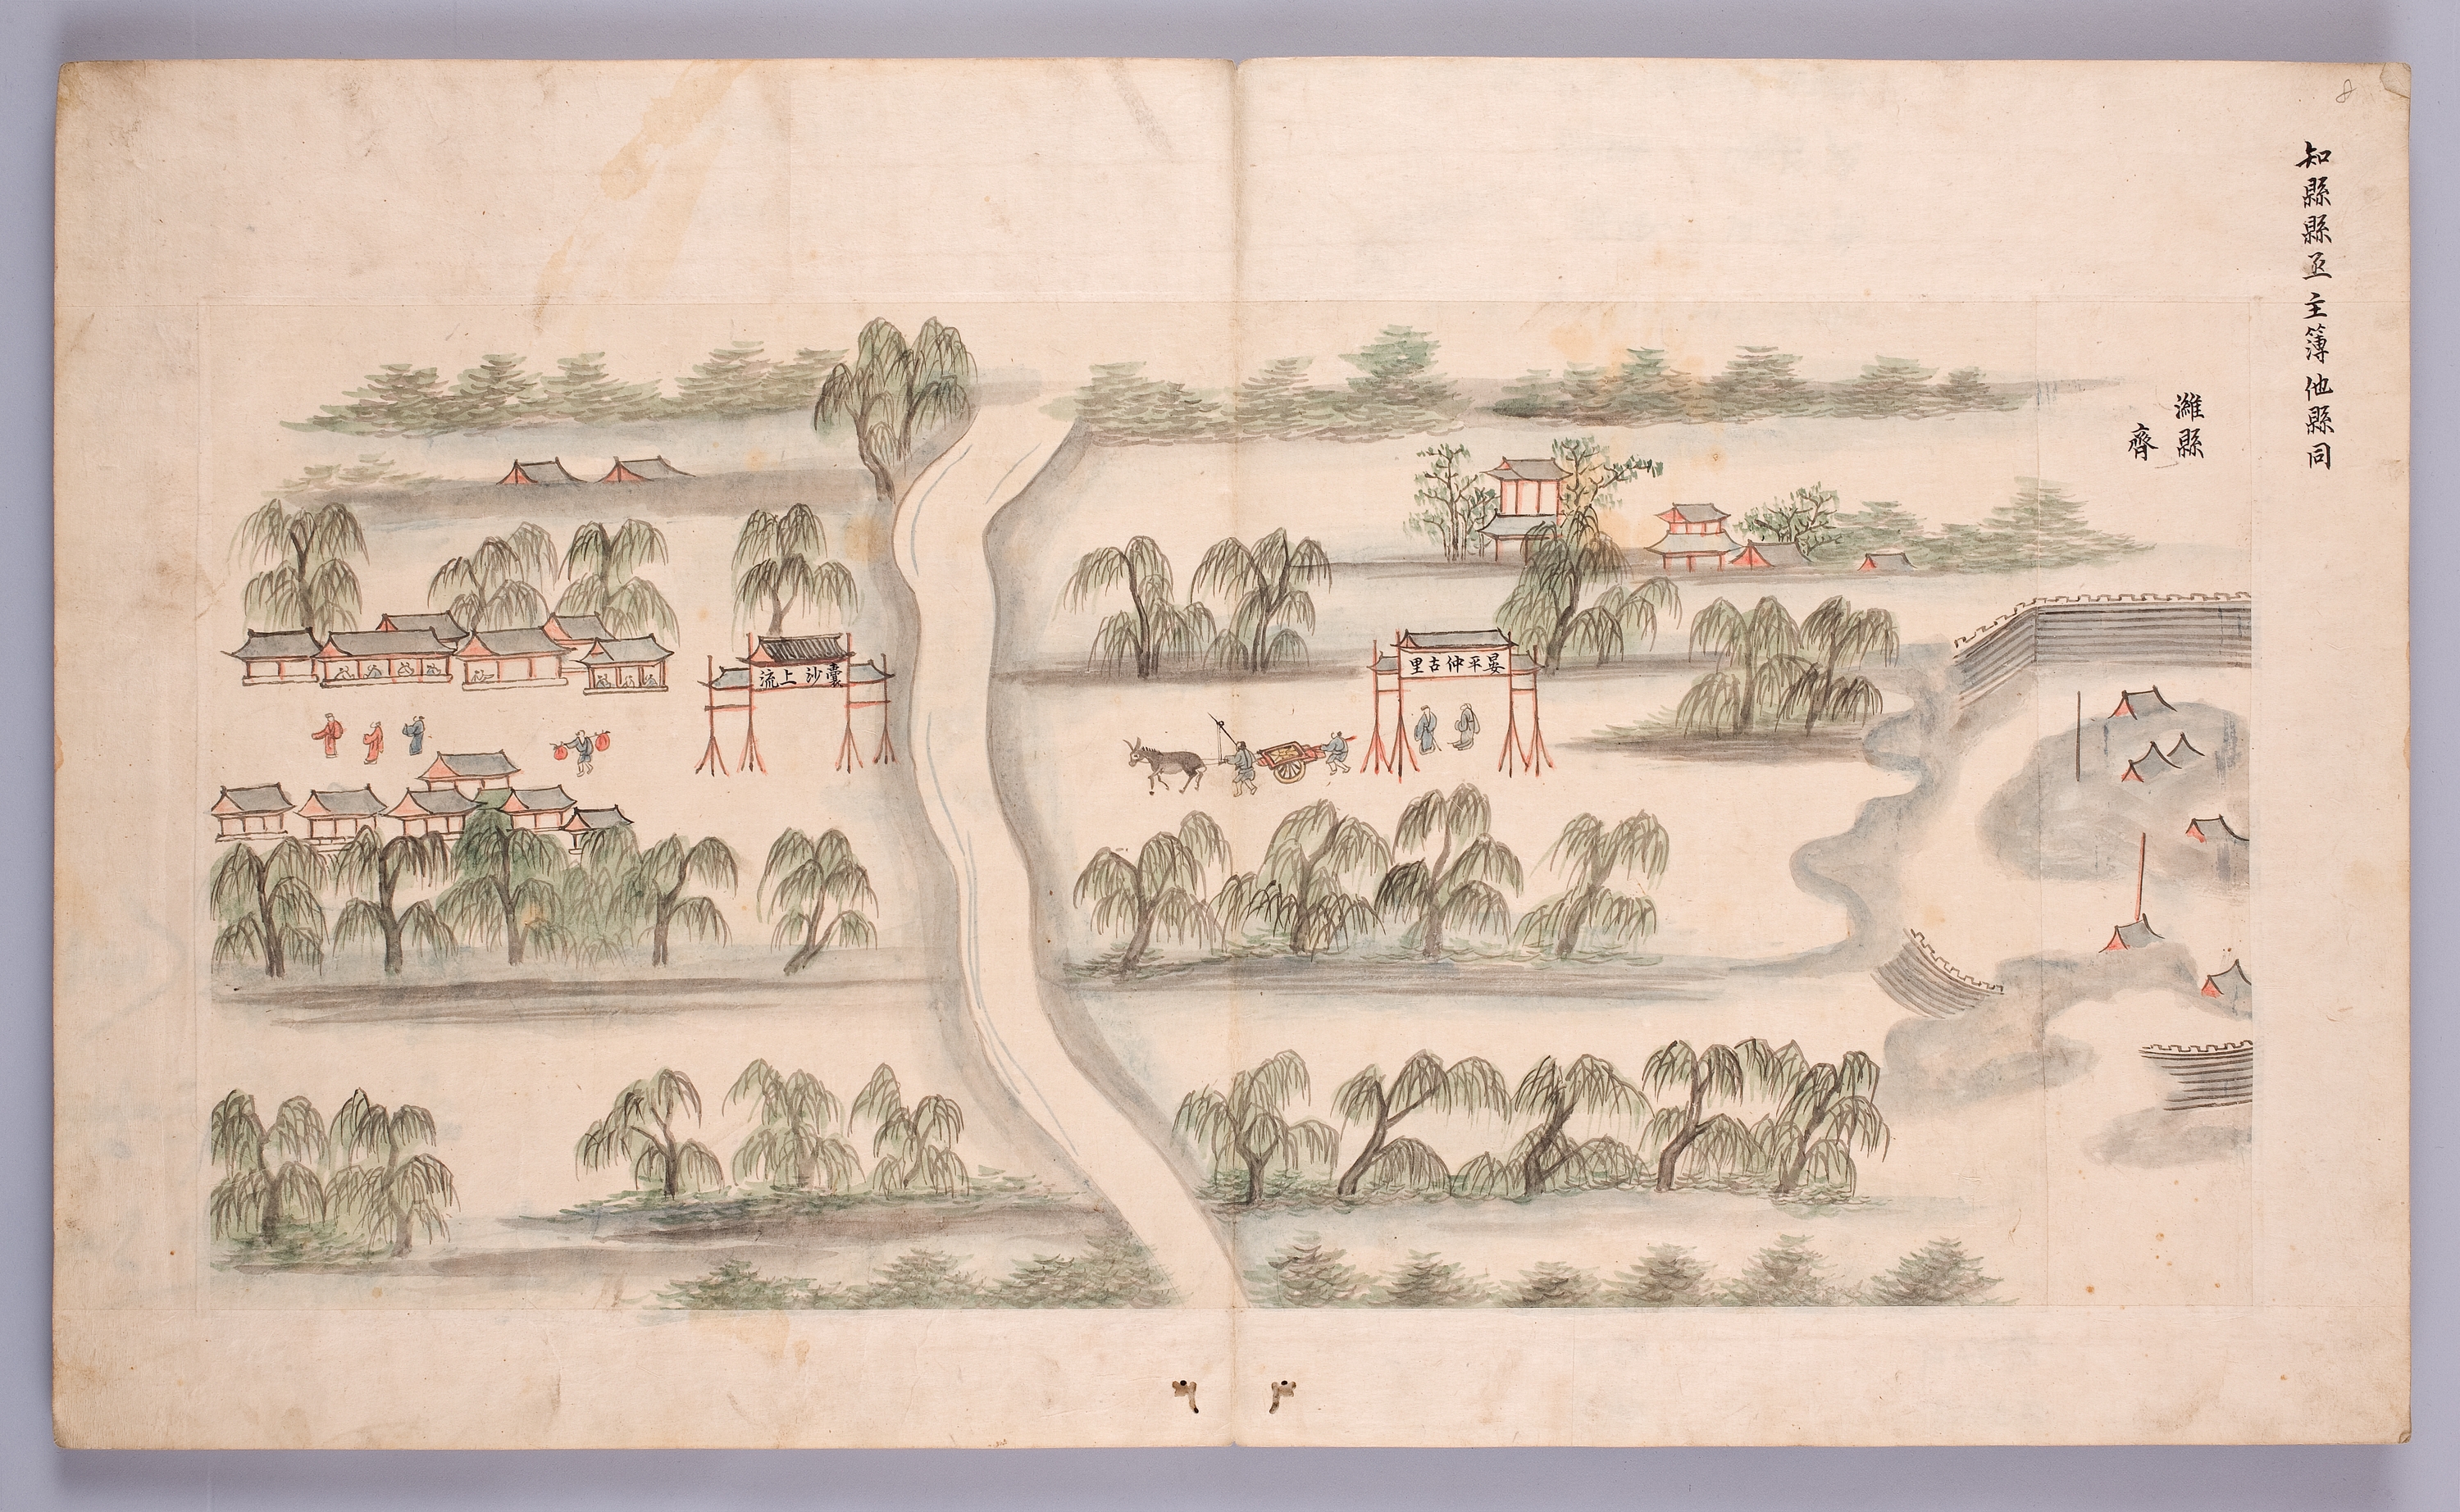 知縣縣丞主簿他縣同
濰縣
齊
晏平仲古里
囊沙上流
8